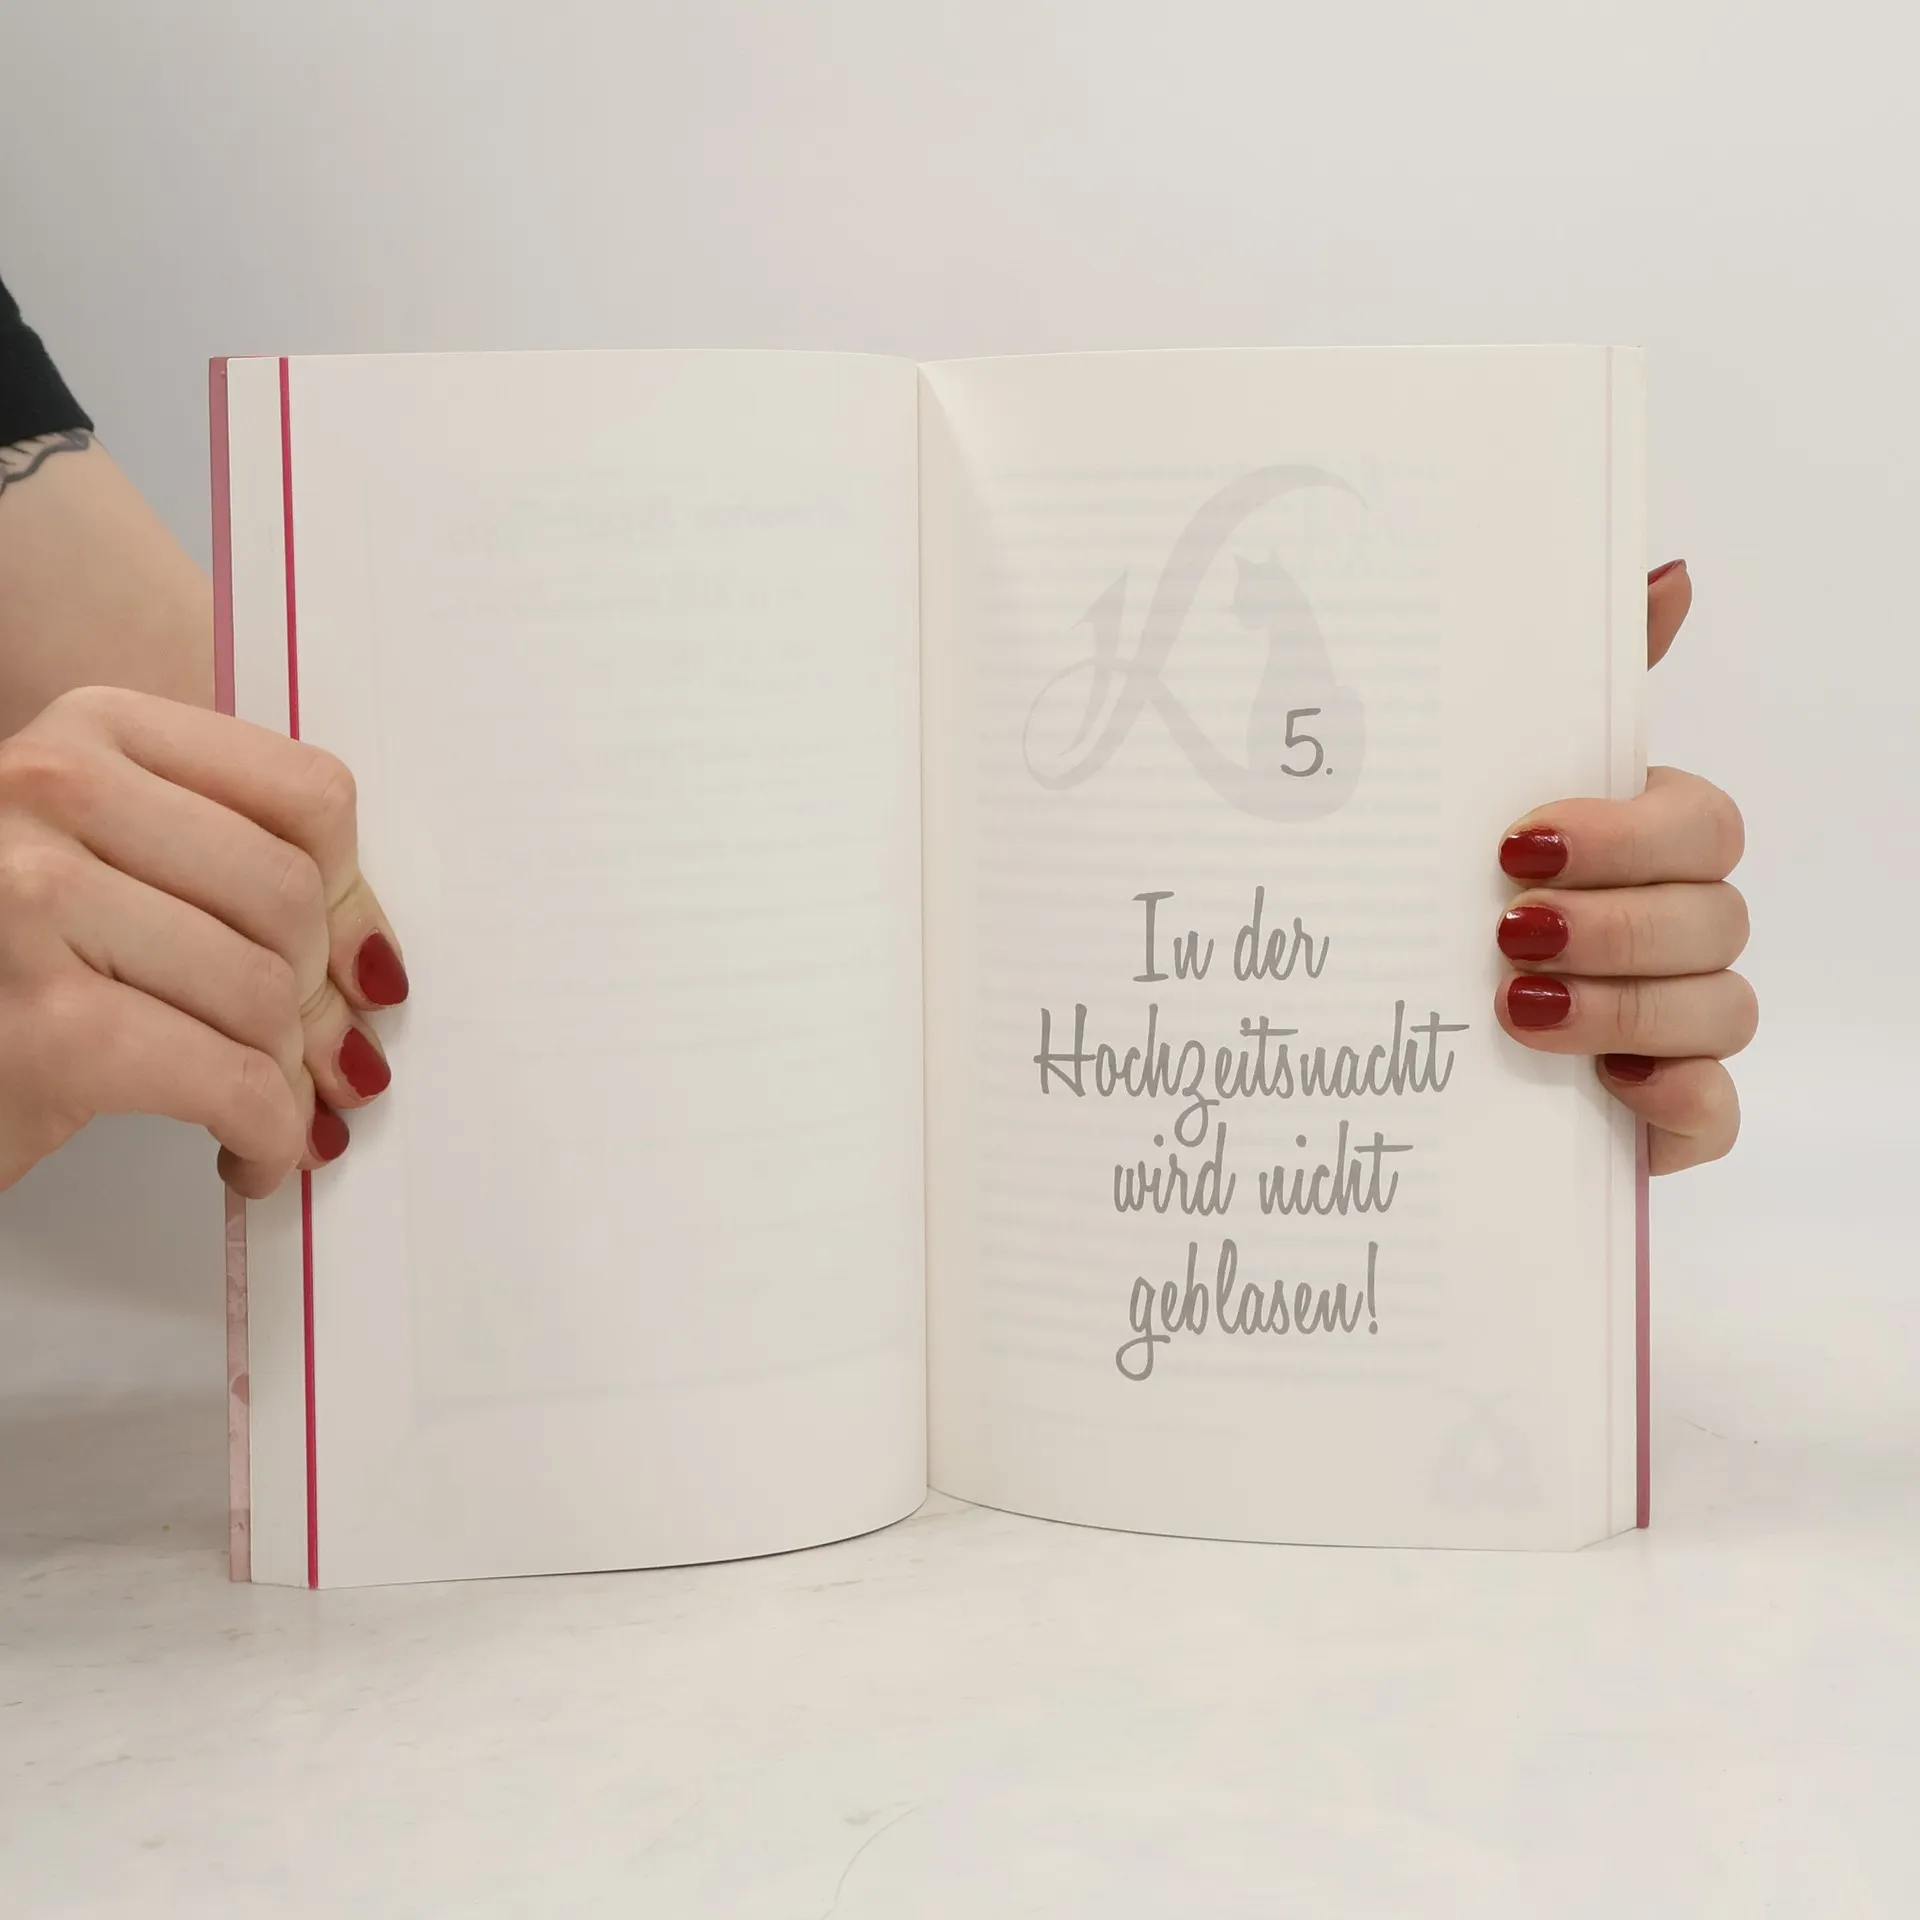 5.
In der
Hochzeitsnacht
wird nicht
geblasen!